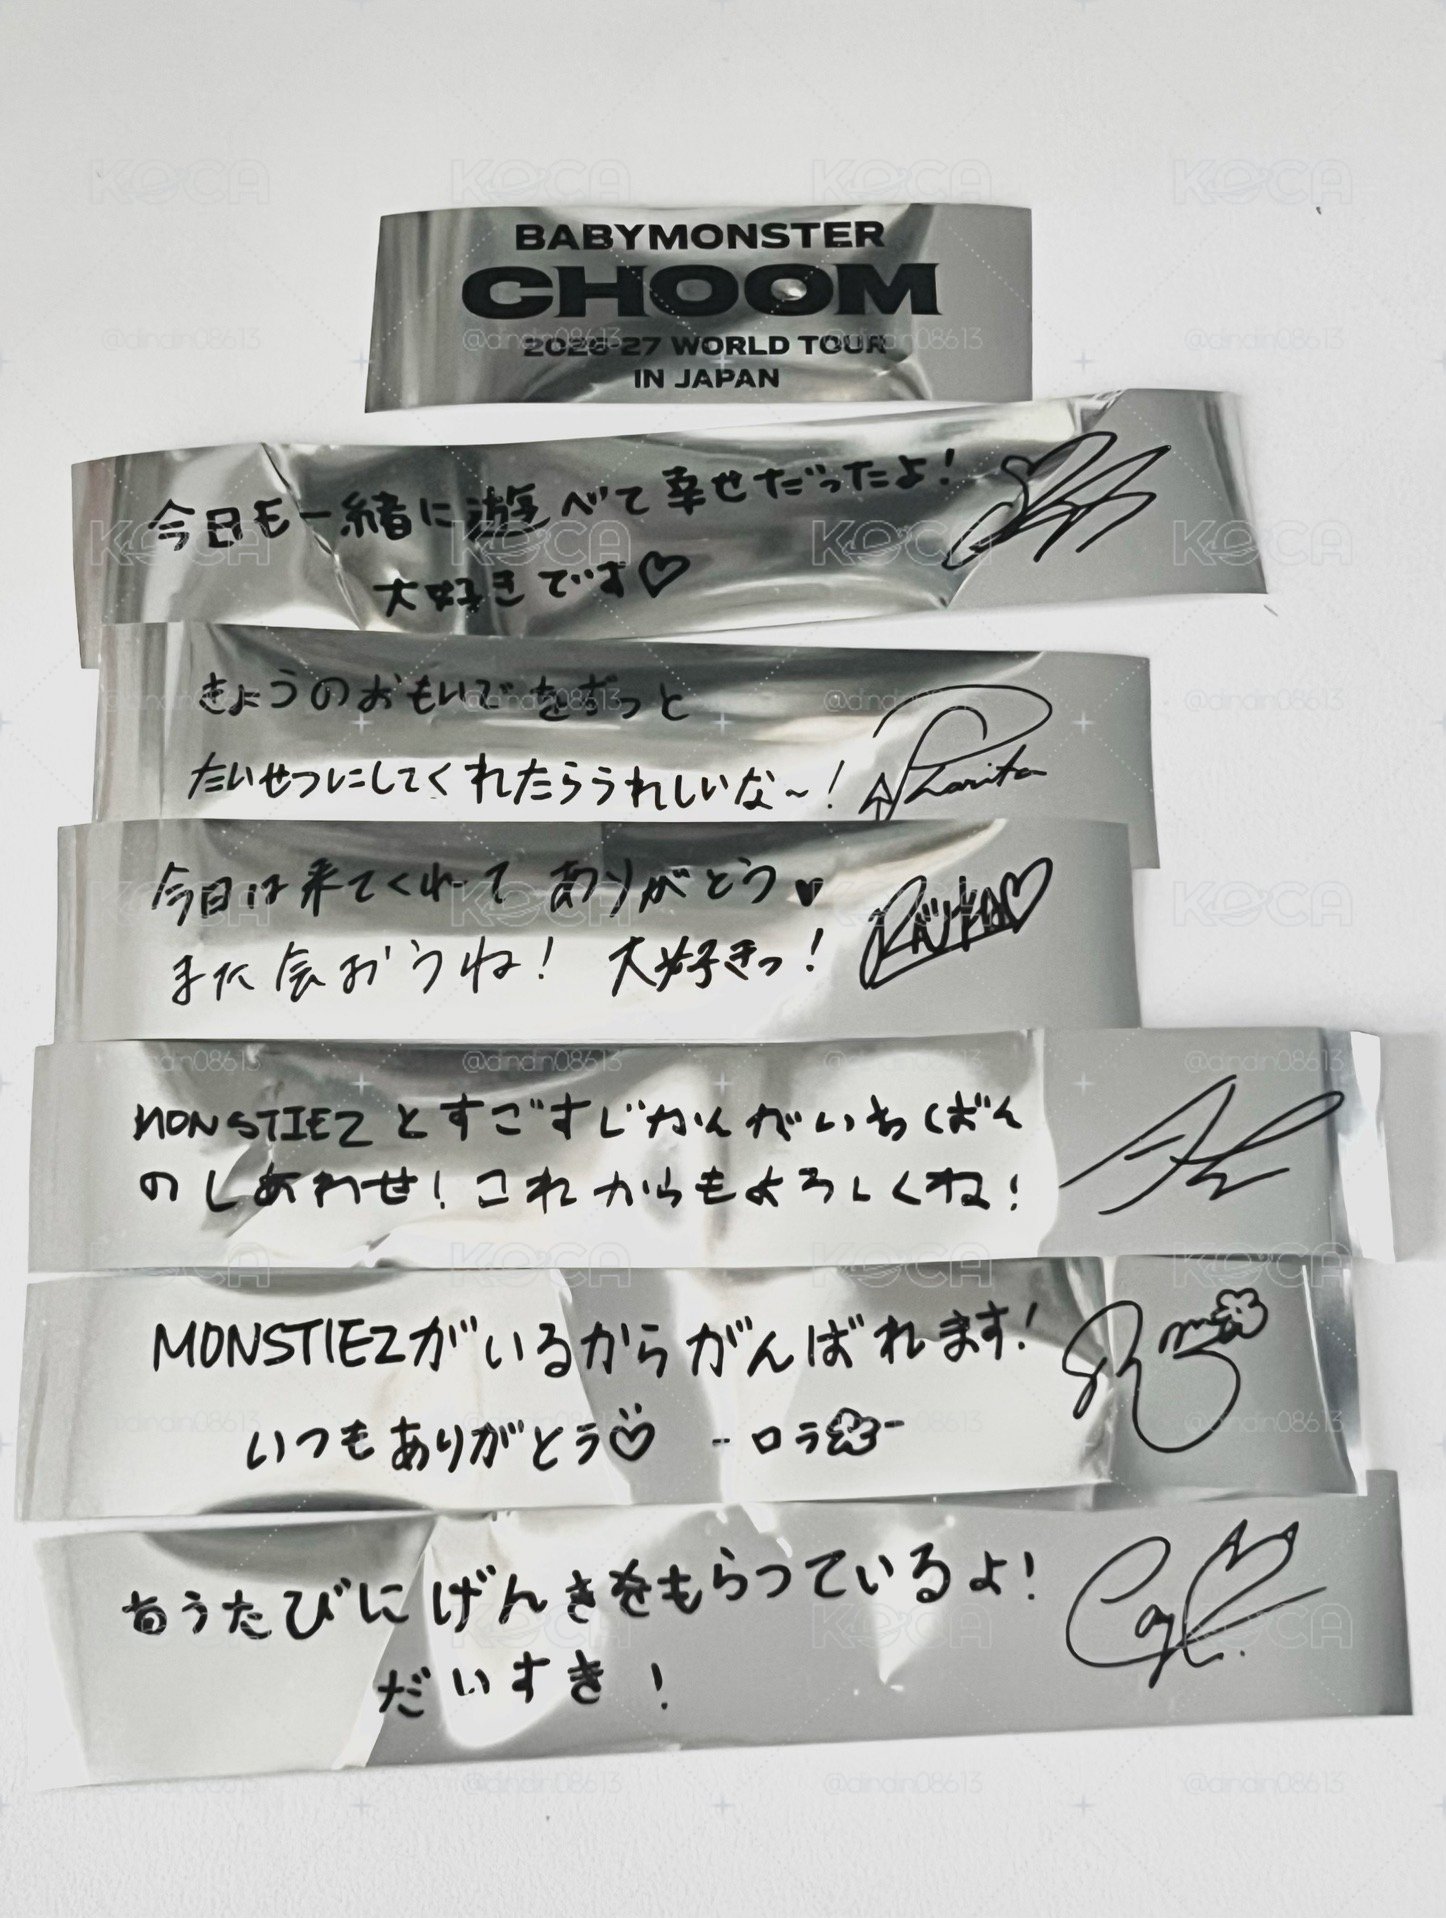 BABYMONSTER
CHOOM
2026-27 WORLD TOUR
IN JAPAN
今日も一緒に遊べて幸せだったよ!
大好きです♡
きょうのおもいでをずっと
たいせつにしてくれたらうれしいな~!
Pharita
今日は来てくれてありがとう♥
また会おうね! 大好きっ!
RUKA♡
MONSTIEZとすごすじかんがいちばん
のしあわせ!これからもよろしくね!
MONSTIEZがいるからがんばれます!
いつもありがとう♡ -ロラ-
会うたびにげんきをもらっているよ!
だいすき!
KOCA
@dindin08613